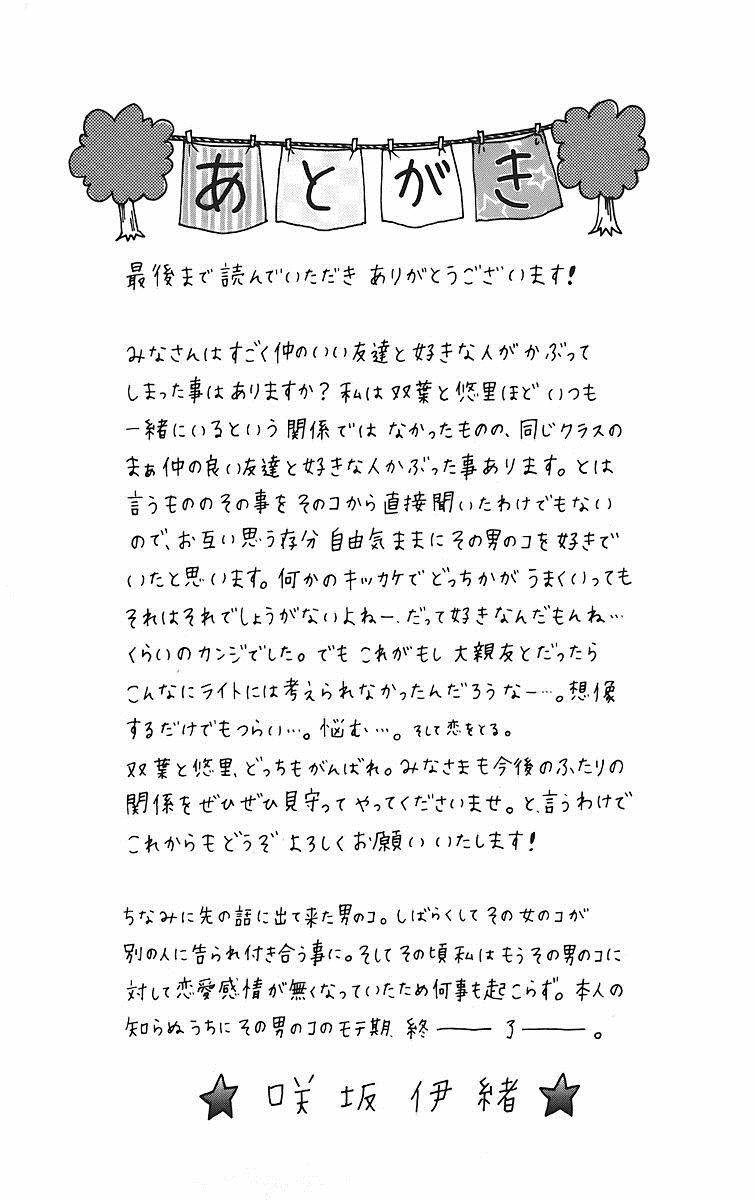 あとがき
最後まで読んでいただき ありがとうございます!
みなさんは すごく仲のいい友達と好きな人が かぶって
しまった事はありますか?私は双葉と悠里ほど いつも
一緒にいるという関係では なかったものの、同じクラスの
まぁ仲の良い友達と好きな人かぶった事あります。とは
言うもののその事を そのコから直接聞いたわけでもない
ので、お互い思う存分 自由気ままに その男のコを好きで
いたと思います。何かのキッカケでどっちかが うまくいっても
それはそれでしょうがないよねー、だって好きなんだもんね…
くらいのカンジでした。でも これがもし 大親友とだったら
こんなにライトには考えられなかったんだろうなー…。想像
するだけでもつらい…。悩む…。そして恋をとる。
双葉と悠里、どっちもがんばれ。みなさまも今後のふたりの
関係をぜひぜひ見守って やってくださいませ。と、言うわけで
これからもどうぞ よろしくお願い いたします!
ちなみに先の話に出て来た男のコ。しばらくして その女のコが
別の人に告られ付き合う事に。そして その頃私は もうその男のコに
対して恋愛感情が無くなっていたため何事も起こらず。本人の
知らぬうちに その男のコのモテ期、終――了――。
★咲坂伊緒★